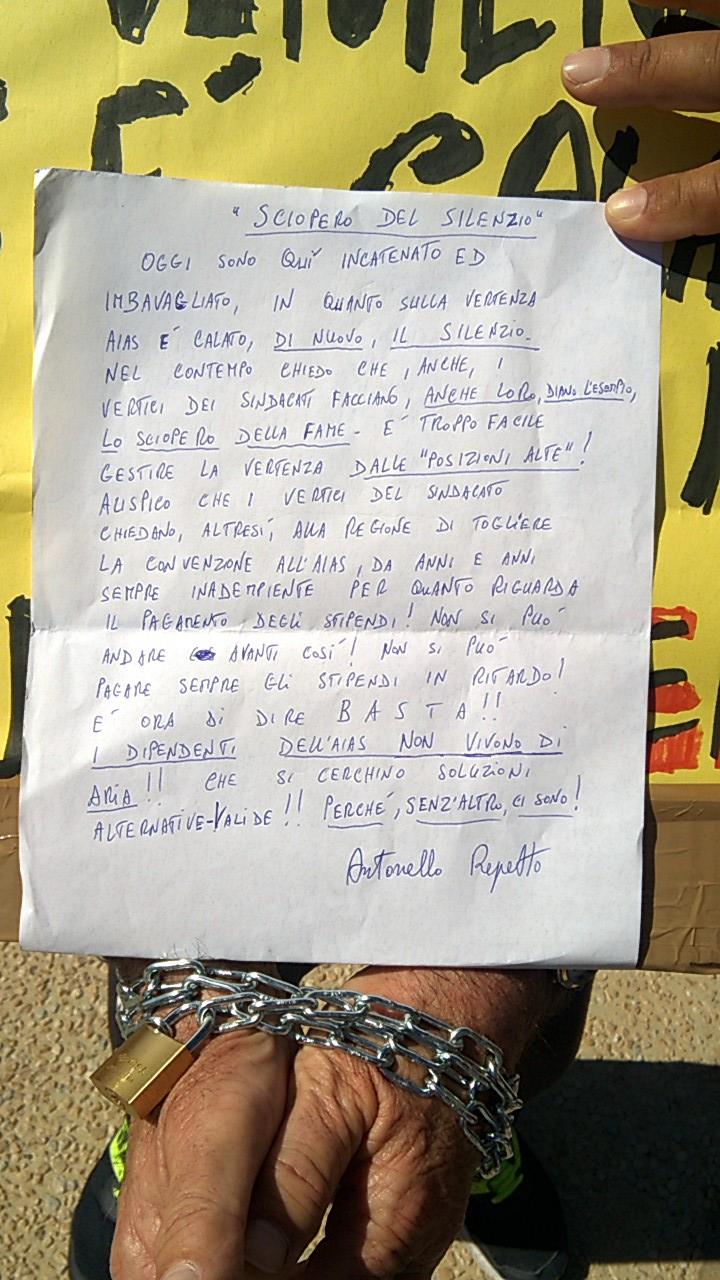 È CA
"SCIOPERO DEL SILENZIO"
OGGI SONO QUÍ INCATENATO ED
IMBAVAGLIATO, IN QUANTO SULLA VERTENZA
AIAS E´ CALATO, DI NUOVO, IL SILENZIO.
NEL CONTEMPO CHIEDO CHE, ANCHE, I
VERTICI DEI SINDACATI FACCIANO, ANCHE LORO, DIANO L'ESEMPIO,
LO SCIOPERO DELLA FAME - E´ TROPPO FACILE
GESTIRE LA VERTENZA DALLE "POSIZIONI ALTE"!
AUSPICO CHE I VERTICI DEL SINDACATO
CHIEDANO, ALTRESÍ, ALLA REGIONE DI TOGLIERE
LA CONVENZIONE ALL'AIAS, DA ANNI E ANNI
SEMPRE INADEMPIENTE PER QUANTO RIGUARDA
IL PAGAMENTO DEGLI STIPENDI! NON SI PUO´
ANDARE AVANTI COSI´! NON SI PUO´
PAGARE SEMPRE GLI STIPENDI IN RITARDO!
E´ ORA DI DIRE BASTA!!
I DIPENDENTI DELL'AIAS NON VIVONO DI
ARIA!! CHE SI CERCHINO SOLUZIONI
ALTERNATIVE-VALIDE!! PERCHE´, SENZ'ALTRO, CI SONO!
Antonello Repetto